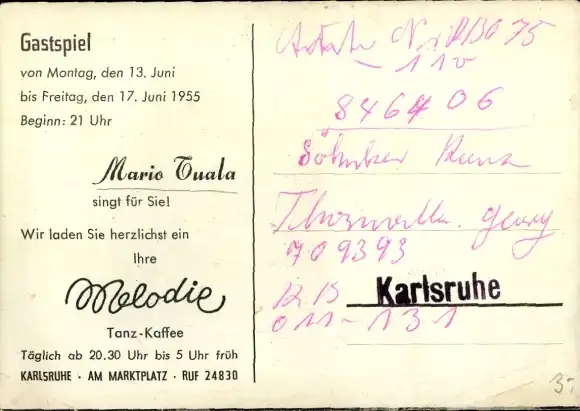 Gastspiel
von Montag, den 13. Juni
bis Freitag, den 17. Juni 1955
Beginn: 21 Uhr
Mario Tuala
singt für Sie!
Wir laden Sie herzlichst ein
Ihre
Melodie
Tanz-Kaffee
Täglich ab 20.30 Uhr bis 5 Uhr früh
KARLSRUHE · AM MARKTPLATZ · RUF 24830
75
- 110
06
Georg
709393
Karlsruhe
011-131